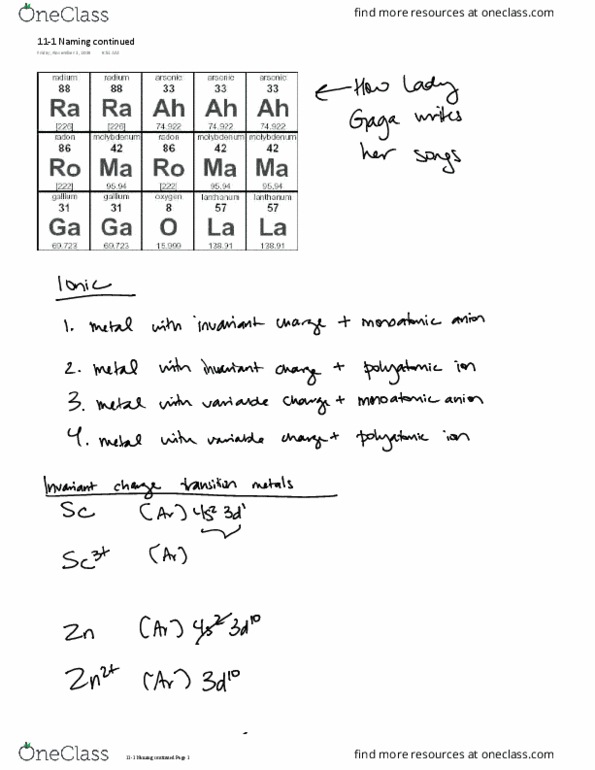 OneClass
find more resources at oneclass.com
11-1 Naming continued
radium radium arsonic arsonic arsonic
88 88 33 33 33
Ra Ra Ah Ah Ah
[226] [226] 74.922 74.922 74.922
radon molybdenum radon molybdenum molybdenum
86 42 86 42 42
Ro Ma Ro Ma Ma
[222] 95.94 [222] 95.94 95.94
gallium gallium oxygen lanthanum lanthanum
31 31 8 57 57
Ga Ga O La La
69.723 69.723 15.999 138.91 138.91
← How lady
Gaga writes
her songs
Ionic
1. metal with invariant charge + monoatomic anion
2. metal with invariant charge + polyatomic ion
3. metal with variable charge + monoatomic anion
4. metal with variable charge + polyatomic ion
Invariant charge transition metals
Sc (Ar) 4s² 3d¹
Sc³⁺ (Ar)
Zn (Ar) 4s² 3d¹⁰
Zn²⁺ (Ar) 3d¹⁰
OneClass
11-1 Naming continued Page 1
find more resources at oneclass.com